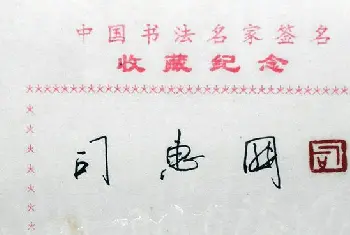 中国书法名家签名
收藏纪念
司惠国